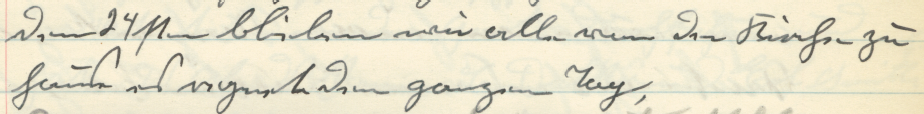 Den 24sten blieben wir alle von der Kirche zu
Hause es regnete den ganzen Tag,